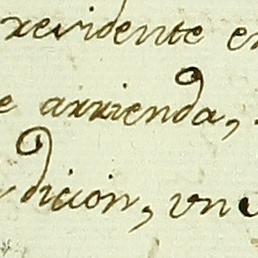 residente en
e arrienda,
dicion, un